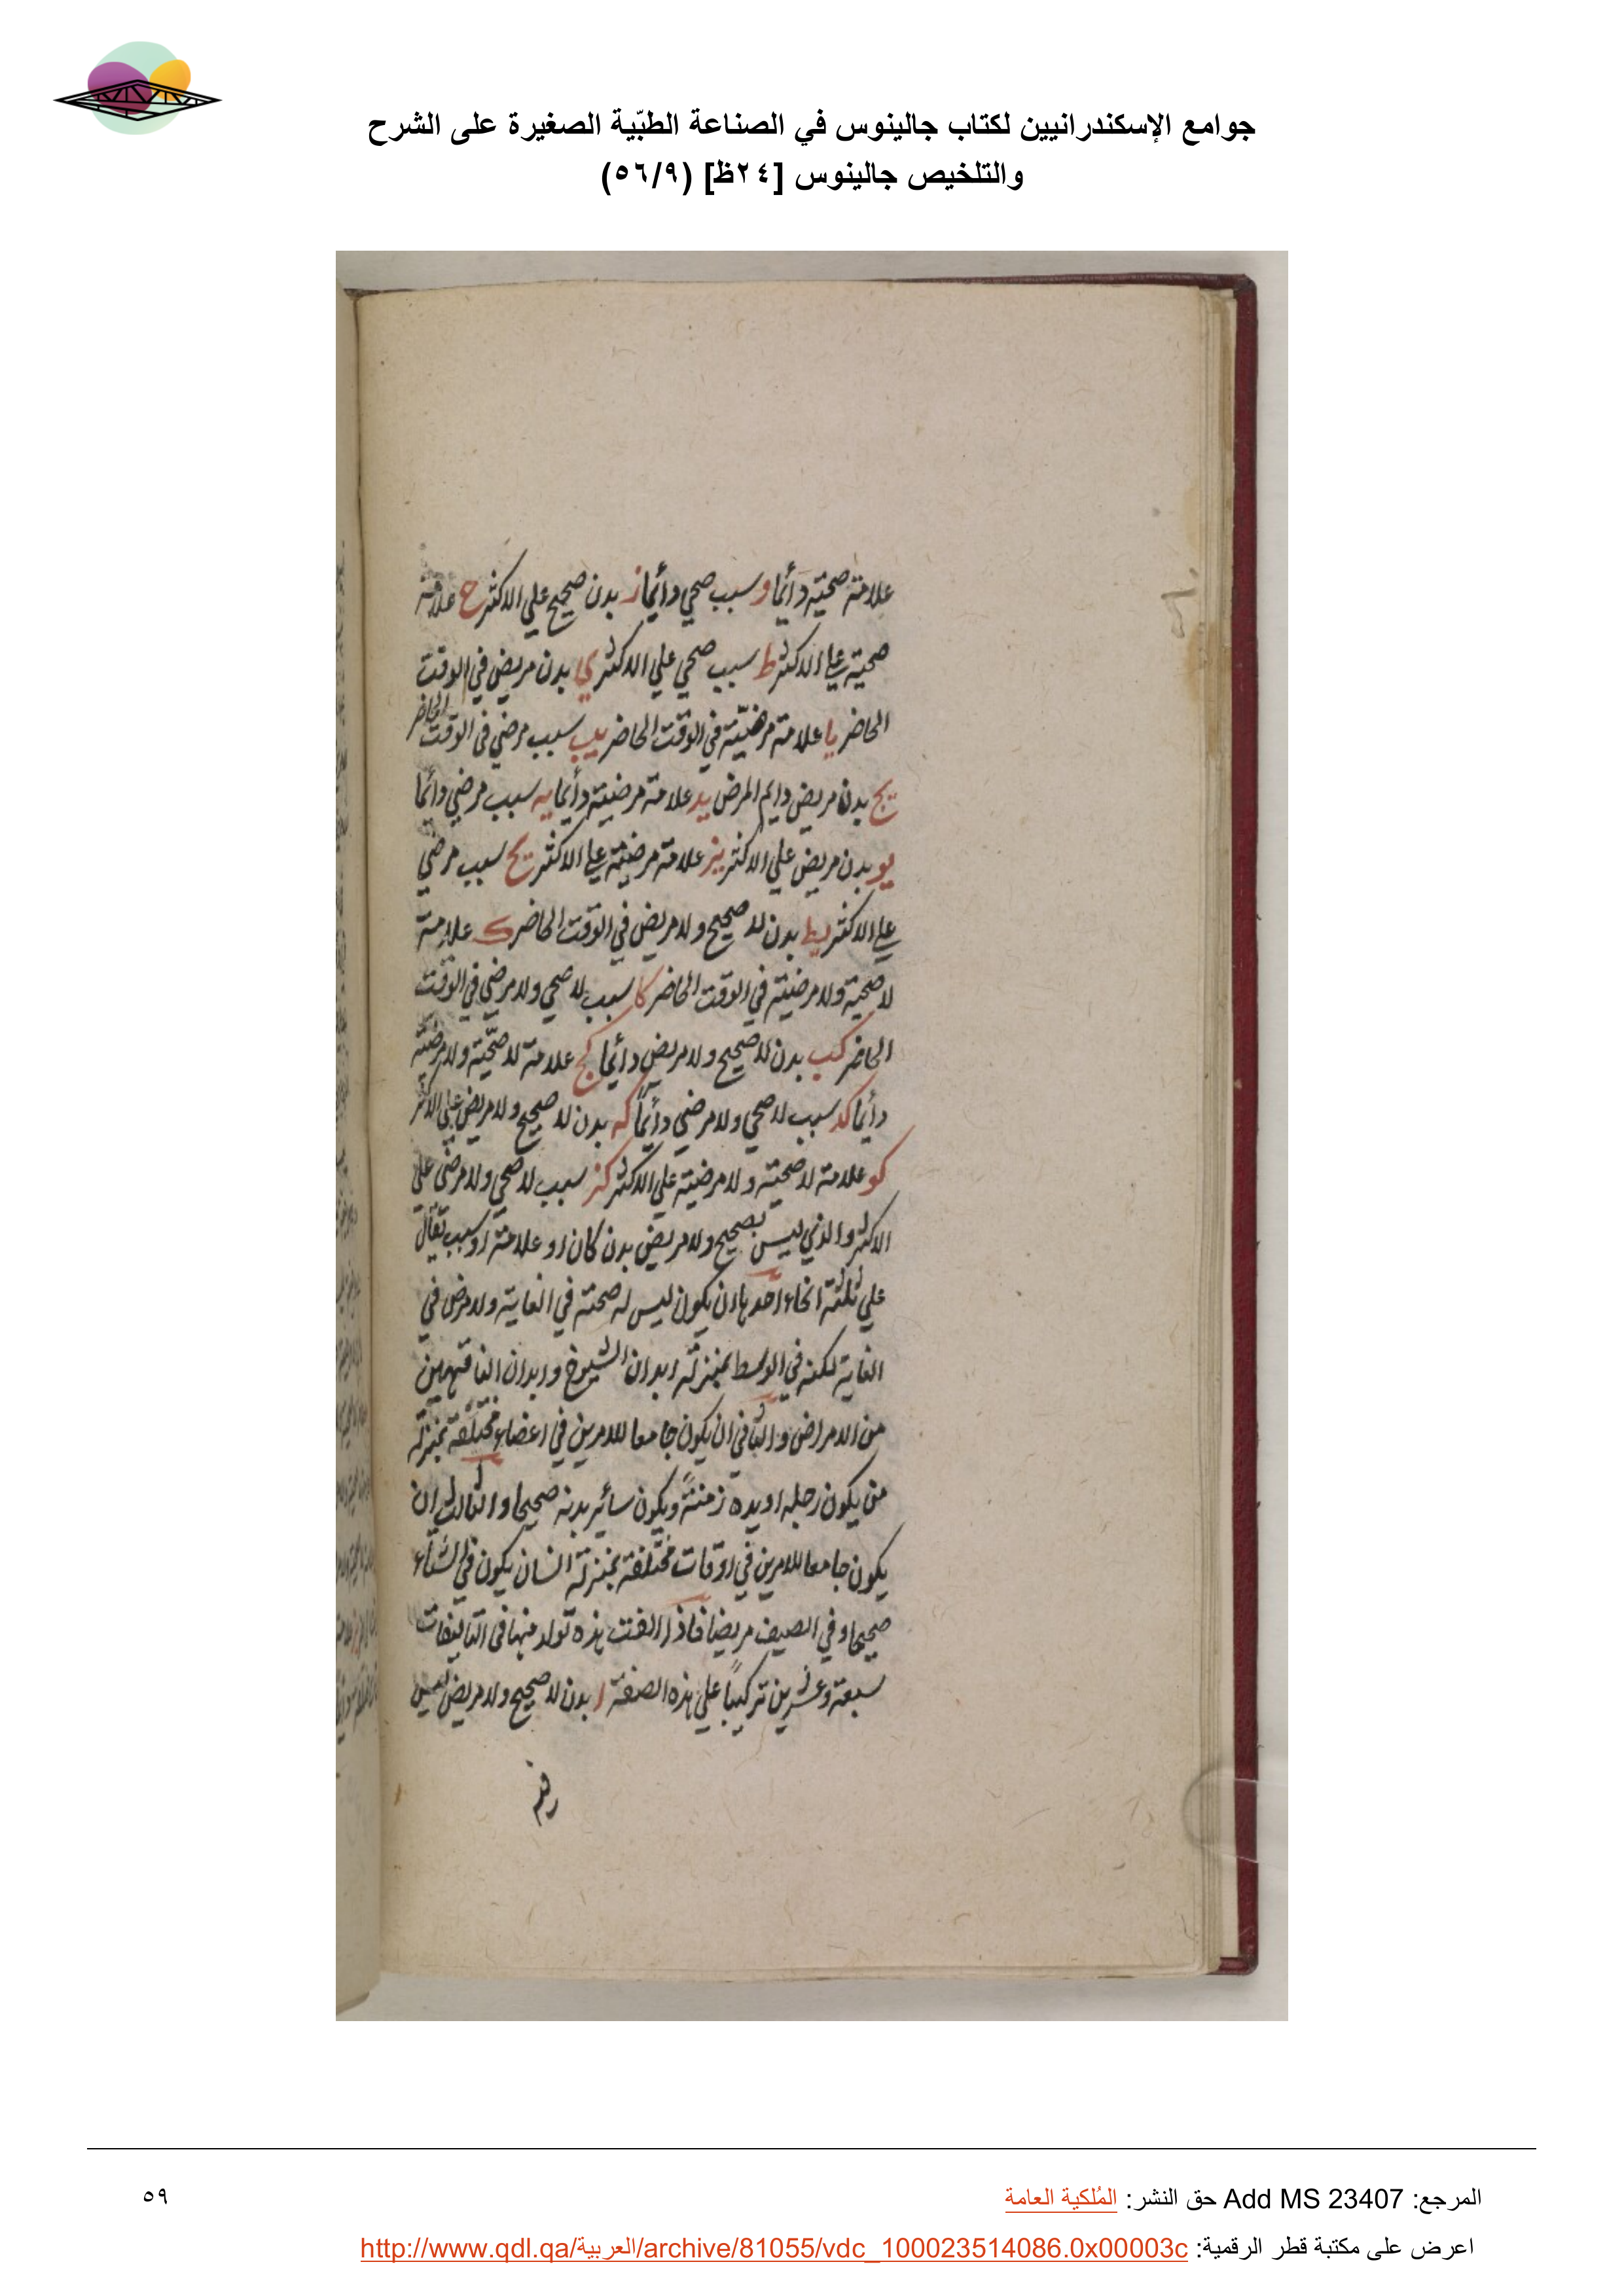 جوامع الإسكندرانيين لكتاب جالينوس في الصناعة الطبّية الصغيرة على الشرح
والتلخيص جالينوس [٢٤ظ] (٥٦/٩)
علامة صحية دأئما و سبب صحي دأئما ز بدن صحيح علي الاكثر ح علامة
صحية علي الاكثر ط سبب صحي علي الاكثر ي بدن مريض في الوقت
الحاضر يا علامة مرضيّة في الوقت الحاضر يب سبب مرضي في الوقت الحاضر
يج بدن مريض دايم المرض يد علامة مرضية دأئما يه سبب مرضي دائما
يو بدن مريض علي الاكثر يز علامة مرضية علي الاكثر يح سبب مرضي
علي الاكثر يط بدن لا صحيح ولا مريض في الوقت الحاضر ك علامة
لا صحية ولا مرضية في الوقت الحاضر كا سبب لا صحي ولا مرضي في الوقت
الحاضر كب بدن لا صحيح ولا مريض دأئما كج علامة لا صحّية ولا مرضية
دأئما كد سبب لا صحي ولا مرضي دأئماً كه بدن لا صحيح ولا مريض علي الاكثر
كو علامة لا صحية ولا مرضية علي الاكثر كز سبب لا صحي ولا مرضي علي
الاكثر والذي ليس بصحيح ولا مريض بدن كان او علامة او سبب يقال
علي ثلثة انحاء احدها ان يكون ليس له صحة في الغاية ولا مرض في
الغاية لكنه في الوسط بمنزلة ابدان الشيوخ وابدان الناقهين
من الامراض والثاني ان يكون جامعا للامرين في اعضاء مختلفة بمنزلة
من يكون رجله او يده زمنةً ويكون سائر بدنه صحيحا والثالث ان
يكون جامعا للامرين في اوقات مختلفة بمنزلة انسان يكون في الشتاء
صحيحا وفي الصيف مريضا فاذا الفت هذه تولد منها في التاليفات
سبعة وعشرين تركيباً علي هذه الصفة ا بدن لا صحيح ولا مريض ليس
المرجع: Add MS 23407 حق النشر: المُلكية العامة
٥٩
اعرض على مكتبة قطر الرقمية: http://www.qdl.qa/العربية/archive/81055/vdc_100023514086.0x00003c